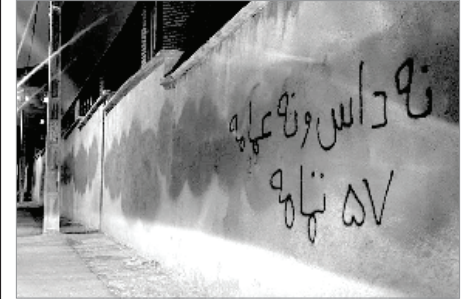 نه داس و نه عمامه
۵۷ تمامه